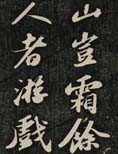 山岂霜餘
人者游戲